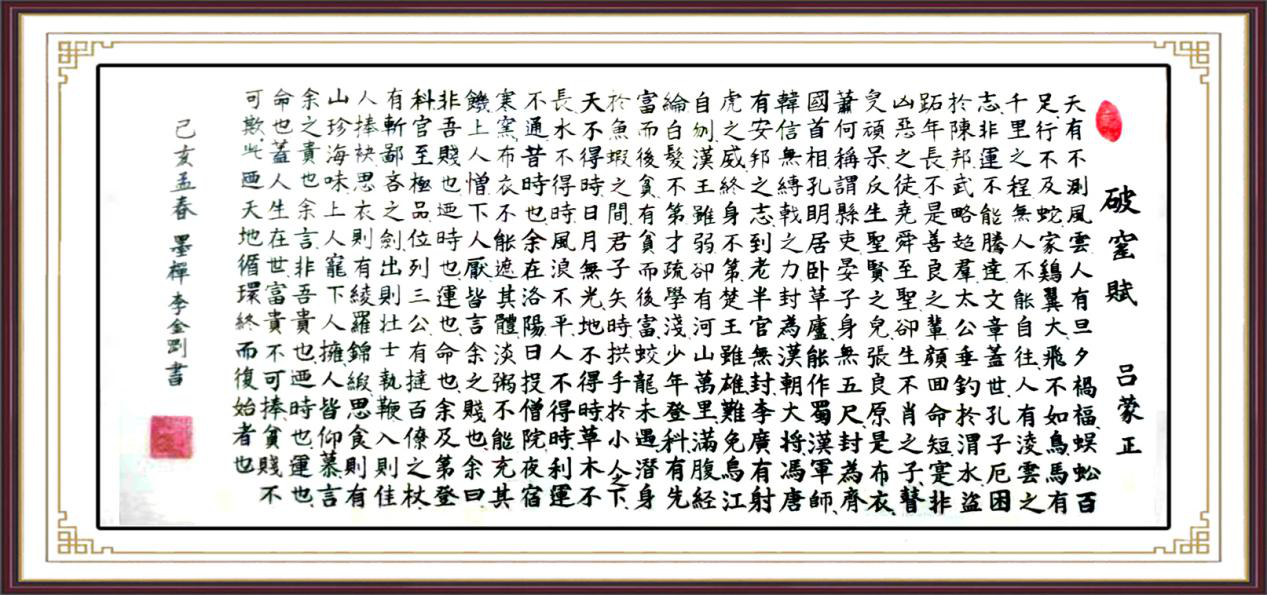 破窰賦 呂蒙正
天有不測風雲人有旦夕禍福蜈蚣百
足行不及蛇家鷄翼大飛不如鳥馬有
千里之程無人不能自往人有淩雲之
志非運不能騰達文章蓋世孔子厄困
於陳邦武略超羣太公垂釣於渭水盜
跖年長不是善良之輩顔回命短寔非
凶惡之徒堯舜至聖卻生不肖之子瞽
叟頑呆反生聖賢之兒張良原是布衣
蕭何稱謂縣吏晏子身無五尺封為齊
國首相孔明居卧草廬能作蜀漢軍師
韓信無縛戟之力封為漢朝大將馮唐
有安邦之志到老半官無封李廣有射
虎之威終身不第楚王雖雄難免烏江
自刎漢王雖弱卻有河山萬里滿腹經
綸白髮不第才疏學淺少年登科有先
富而後貧有貧而後富蛟龍未遇潛身
於魚蝦之間君子矢時拱手於小人之下
天不得時日月無光地不得時草木不
長水不得時風浪不平人不得時利運
不通昔時也余在洛陽日投僧院夜宿
寒窯布衣不能遮其體淡粥不能充其
饑上人憎下人厭皆言余之賤也余曰
非吾賤也迺時也運也命也余及第登
科官至極品位列三公有撻百僚之杖
有斬鄙吝之劍出則壯士執鞭入則佳
人捧袂思衣則有綾羅錦緞思食則有
山珍海味上人寵下人擁人皆仰慕言
余之貴也余言非吾貴也迺時也運也
命也蓋人生在世富貴不可捧貧賤不
可欺此迺天地循環終而復始者也
己亥孟春 墨禪李金剛書